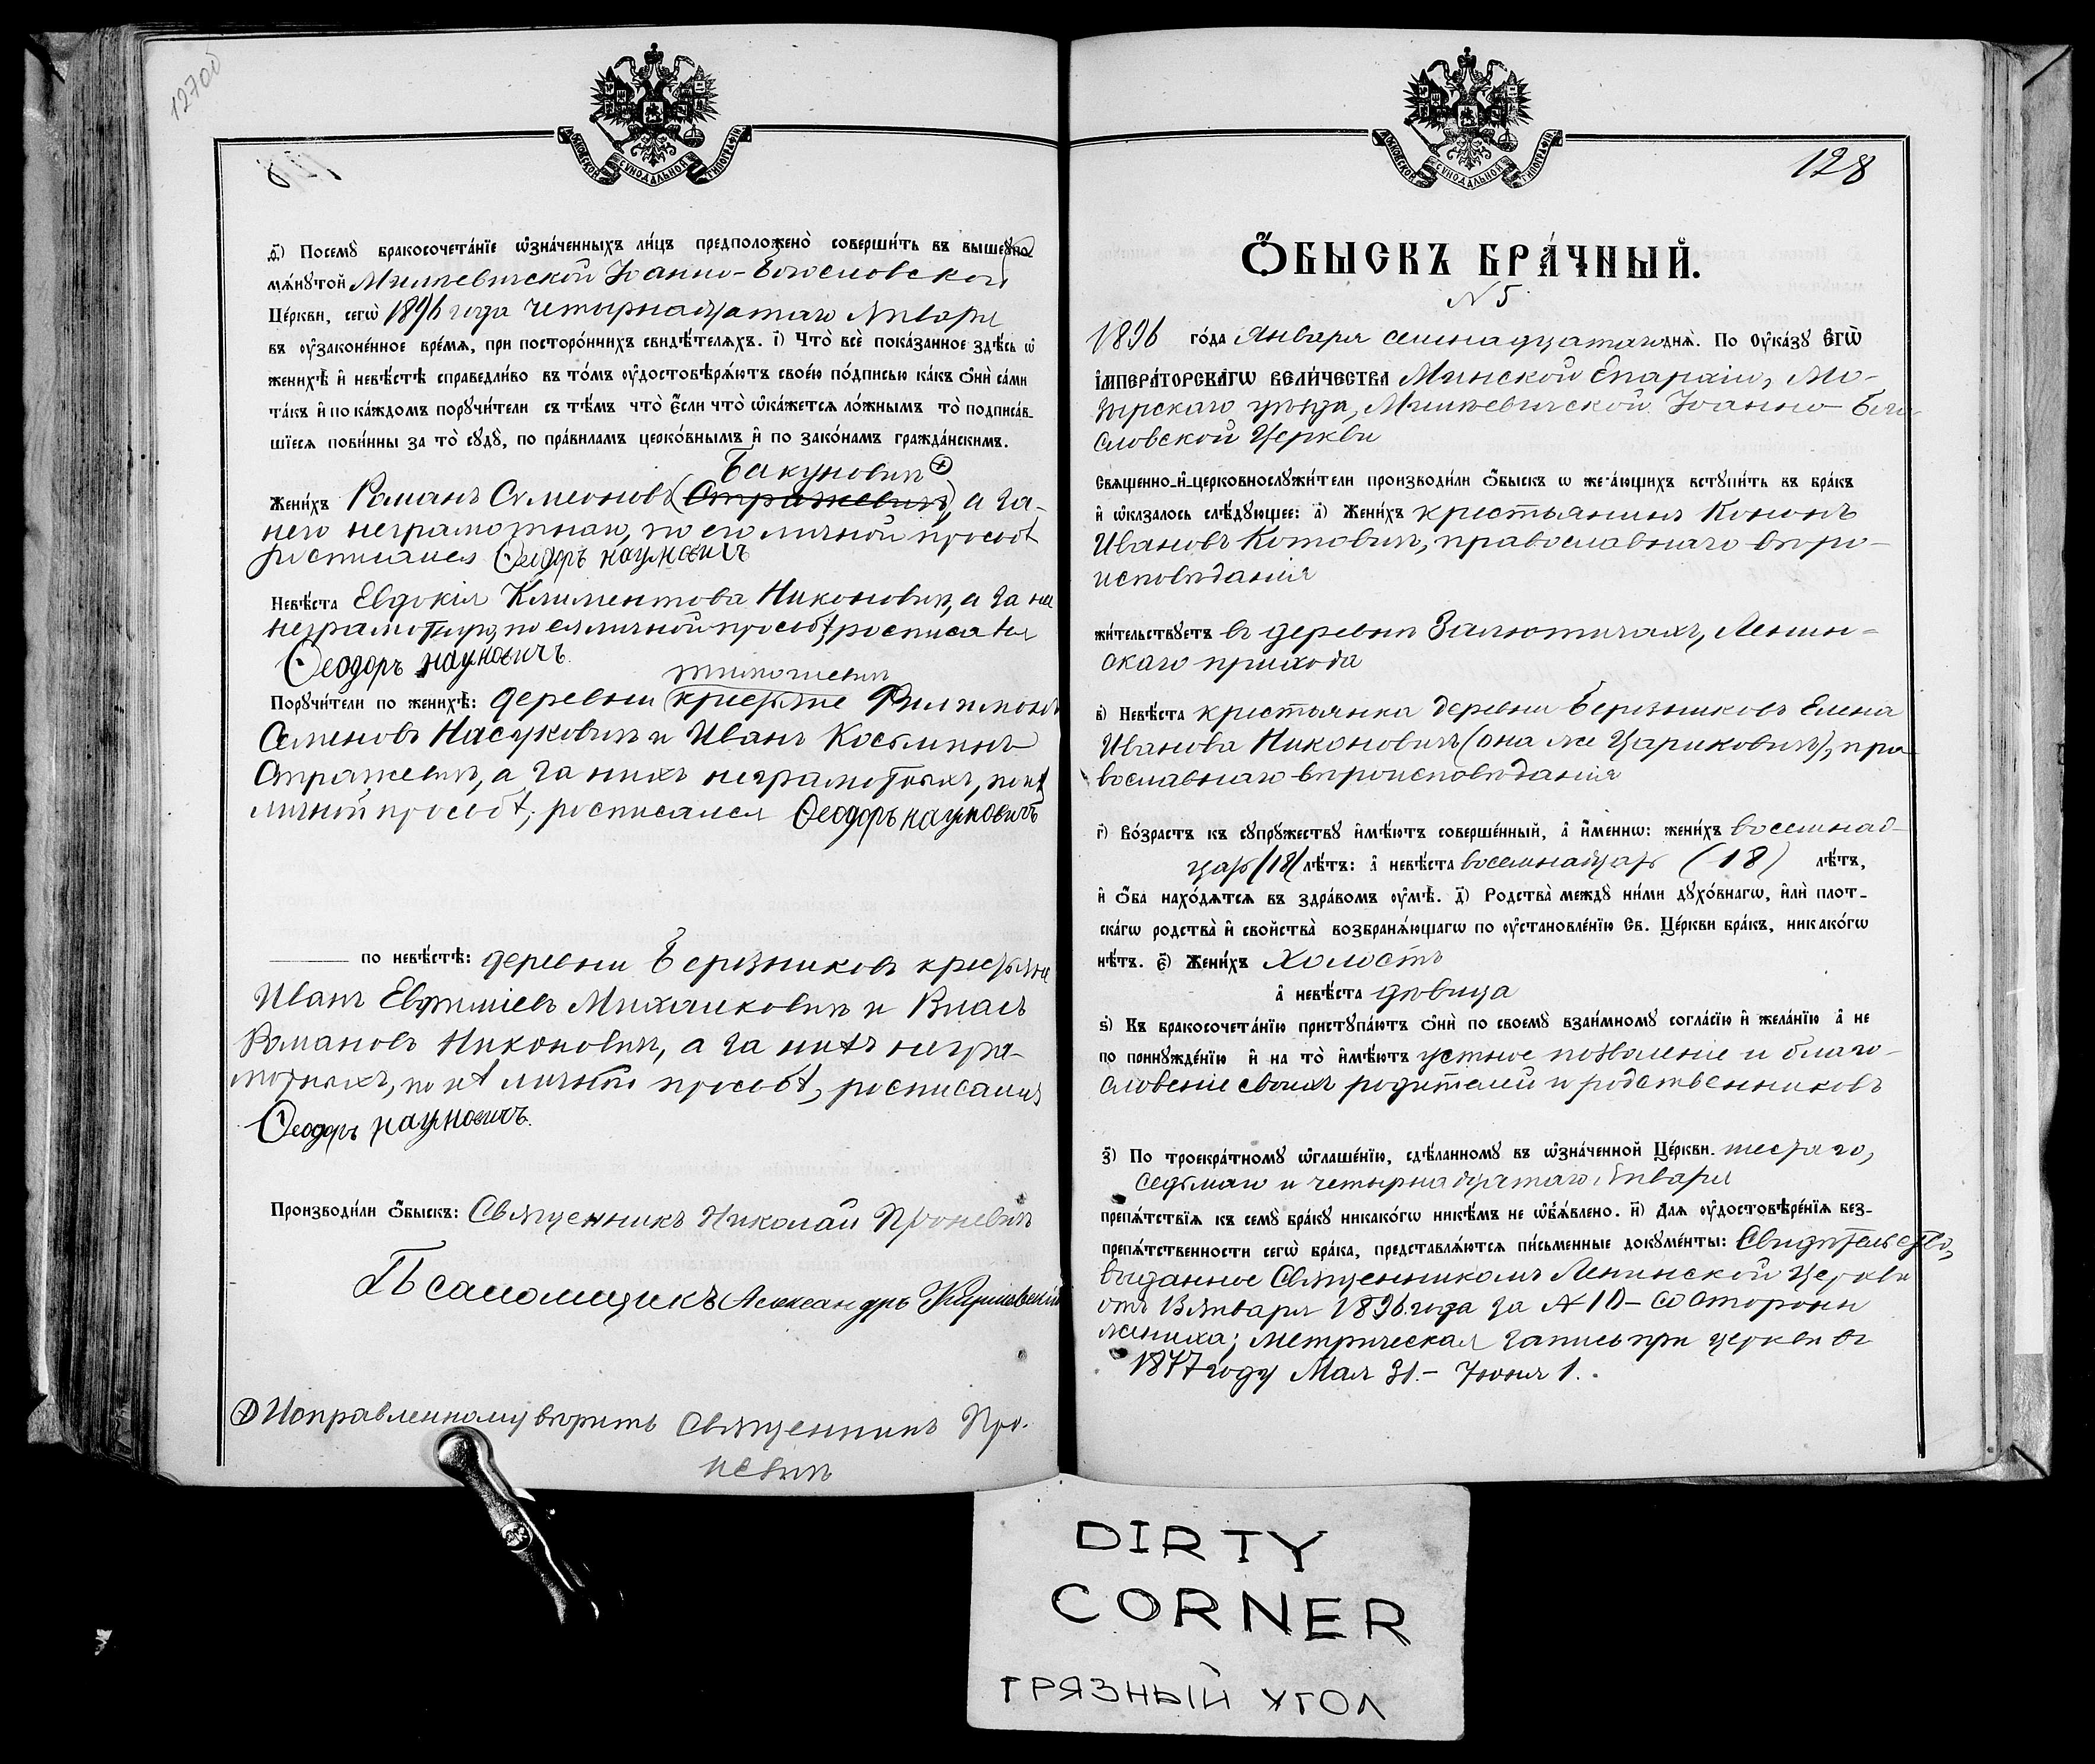 127об
МОСКОВСКОЙ СѴНОДАЛЬНОЙ ТИПОГРАФІИ
ѳ҃) Посемꙋ̀ бракосочета́нїе ѡ҆зна́ченныхъ ли́цъ предположено̀ соверши́ть въ вышеꙋпо
мѧ́нꙋтой Милевичской Іоанно-Богословской
Це́ркви, сегѡ̀ 1896 года четырнадцатаго Января
въ ᲂу҆зако́ненное вре́мѧ, при посторо́ннихъ свидѣ́телѧхъ. і҃) Что̀ всѐ пока́занное здѣ́сь ѡ҆
женихѣ̀ и҆ невѣ́стѣ справедли́во въ то́мъ ᲂу҆достовѣрѧ́ютъ свое́ю по́дписью ка́къ ѻ҆нѝ са́ми
та́къ и҆ по ка́ждомъ порꙋчи́тели съ тѣ́мъ что̀ є҆́сли что̀ ѡ҆ка́жетсѧ ло́жнымъ то̀ подписа́в-
шїесѧ пови́нны за то̀ сꙋдꙋ̀, по пра́виламъ церко́внымъ и҆ по зако́намъ гражда́нскимъ.
Бакуновичъ ⊕
Жени́хъ Романъ Симеоновъ (Стражевичъ), а за-
него неграмотнаго, по его личной просьбѣ
росписался Ѳеодоръ Наумовичъ
Невѣ́ста Евдокія Климентова Никоновичъ, а за нее
неграмотную, по ея личной просьбѣ, росписался
Ѳеодоръ Наумовичъ.
Порꙋчи́тели по женихѣ̀: деревни крестьяне Филимонъ
Семеновъ и Иванъ Косьминъ
Стражевичъ, а за нихъ неграмотныхъ, по ихъ
личной просьбѣ, росписался Ѳеодоръ Наумовичъ
по невѣ́стѣ: деревни Березниковъ крестьяне
Иванъ Евфиміевъ Михалковичъ и Власъ
Романовъ Никоновичъ, а за нихъ негра-
мотныхъ, по ихъ личной просьбѣ, росписался
Ѳеодоръ Наумовичъ.
Производи́ли ѻ҆́быскъ: Священникъ Николай Проневичъ
Псаломщикъ Александръ
⊕ Исправленному вѣрить Священникъ Про-
невичъ
МОСКОВСКОЙ СѴНОДАЛЬНОЙ ТИПОГРАФІИ
128
Ѻ҆́БЫСКЪ БРА́ЧНЫЙ.
N 5
1896 го́да Января семнадцатаго днѧ̀. По ᲂу҆ка́зꙋ Є҆ГѠ̀
І҆МПЕРА́ТОРСКАГѠ ВЕЛИ́ЧЕСТВА Минской Епархіи, Мо-
зырскаго уѣзда, Милевичской Іоанно-Бого-
словской Церкви
Свѧщенно-и҆-церковнослꙋжи́тели производи́ли ѻ҆́быскъ ѡ҆ жела́ющихъ встꙋпи́ть въ бра́къ
и҆ ѡ҆казалось слѣ́дꙋющее: а҃) Жени́хъ крестьянинъ Кононъ
Ивановъ Котовичъ, православнаго вѣро-
исповѣданія
жи́тельствꙋетъ въ деревнѣ Залютичахъ, Ленин-
скаго прихода
в҃) Невѣ́ста крестьянка деревни Березниковъ Елена
Иванова Никоновичъ (она же Цариковичъ), пра-
вославнаго вѣроисповѣданія
г҃) Во́зрастъ къ сꙋпрꙋжествꙋ и҆мѣ́ютъ соверше́нный, а҆ и҆́меннѡ: жени́хъ восемнад-
цать (18) лѣ́тъ: а҆ невѣ́ста восемнадцать (18) лѣ́тъ,
и҆ ѻ҆́ба нахо́дѧтсѧ въ здра́вомъ ᲂу҆мѣ̀. д҃) Родства̀ междꙋ ни́ми дꙋхо́внагѡ, и҆лѝ плот-
ска́гѡ родства̀ и҆ свойства̀ возбранѧ́ющагѡ по ᲂу҆становле́нїю Св. Це́ркви бра́къ, никако́гѡ
нѣ́тъ. є҃) Жени́хъ холостъ
а҆ невѣ́ста дѣвица
ѕ҃) Къ бракосочета́нїю пристꙋпа́ютъ ѻ҆нѝ по своемꙋ̀ взаи́мномꙋ согла́сїю и҆ жела́нїю а҆ не
по принꙋжде́нїю и҆ на то̀ и҆мѣ́ютъ устное позволеніе и благо-
словеніе своихъ родителей и родственниковъ
з҃) По троекра́тномꙋ ѡ҆глаше́нїю, сдѣ́ланномꙋ въ ѡ҆зна́ченной Це́ркви. шестаго,
седьмаго и четырнадцатаго Января
препѧ́тствїѧ къ семꙋ̀ бра́кꙋ никако́гѡ никѣ́мъ не ѡ҆б̾ѧ́влено. и҃) Длѧ ᲂу҆достовѣре́нїѧ без-
препѧ́тственности сегѡ̀ бра́ка, представлѧ́ютсѧ пи́сьменные докꙋме́нты: Свидѣтельство,
выданное Священникомъ Ленинской Церкви
отъ 13 января 1896 года за № 10 – со стороны
жениха; метрическая запись при церкви въ
1877 году Мая 31. – Іюня 1.
DIRTY
CORNER
ГРЯЗНЫЙ УГОЛ